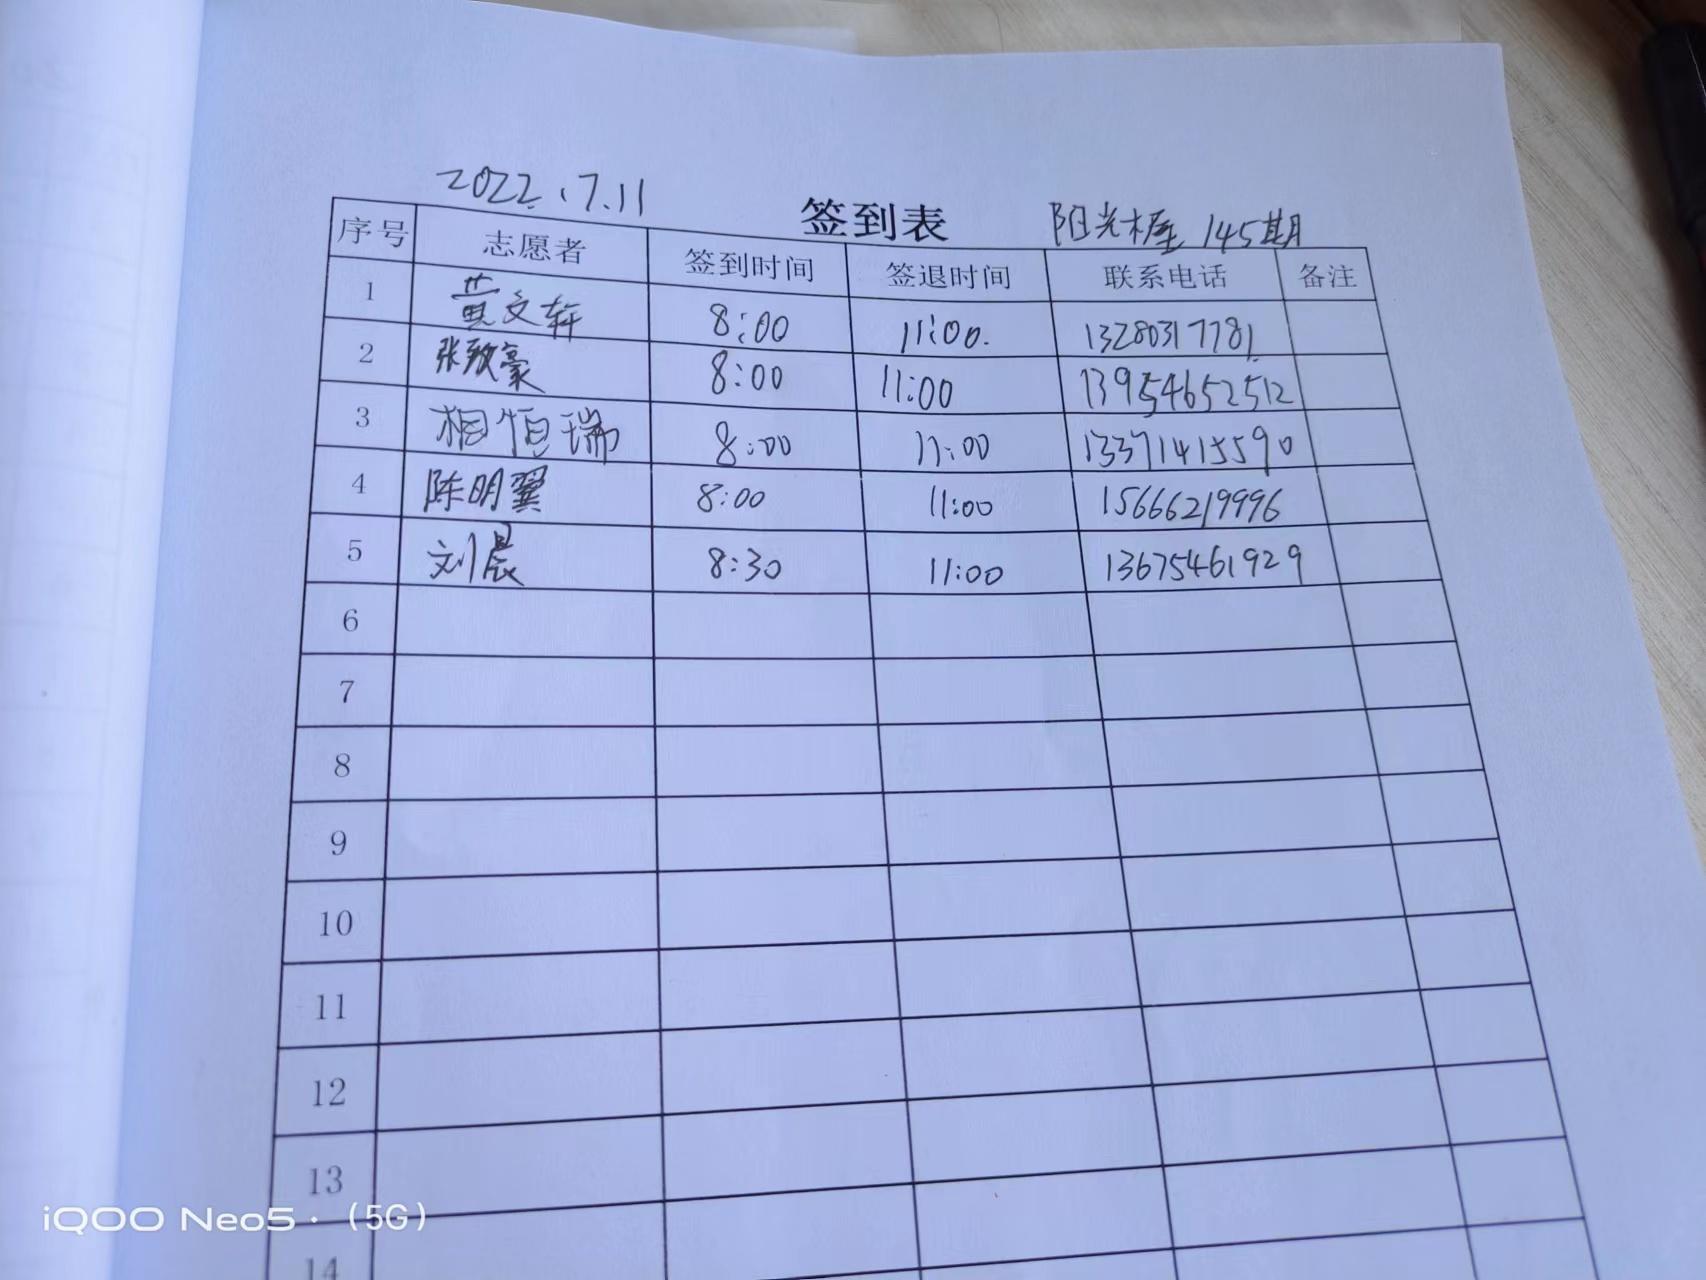 2022.7.11
签到表 阳光木屋 145期
序号 志愿者 签到时间 签退时间 联系电话 备注
1 黄文轩 8:00 11:00. 13280317781
2 张致豪 8:00 11:00 13954652512
3 相恒瑞 8:00 11:00 13371415590
4 陈明翼 8:00 11:00 15666219996
5 刘晨 8:30 11:00 13675461929
6
7
8
9
10
11
12
13
14
iQOO Neo5·(5G)